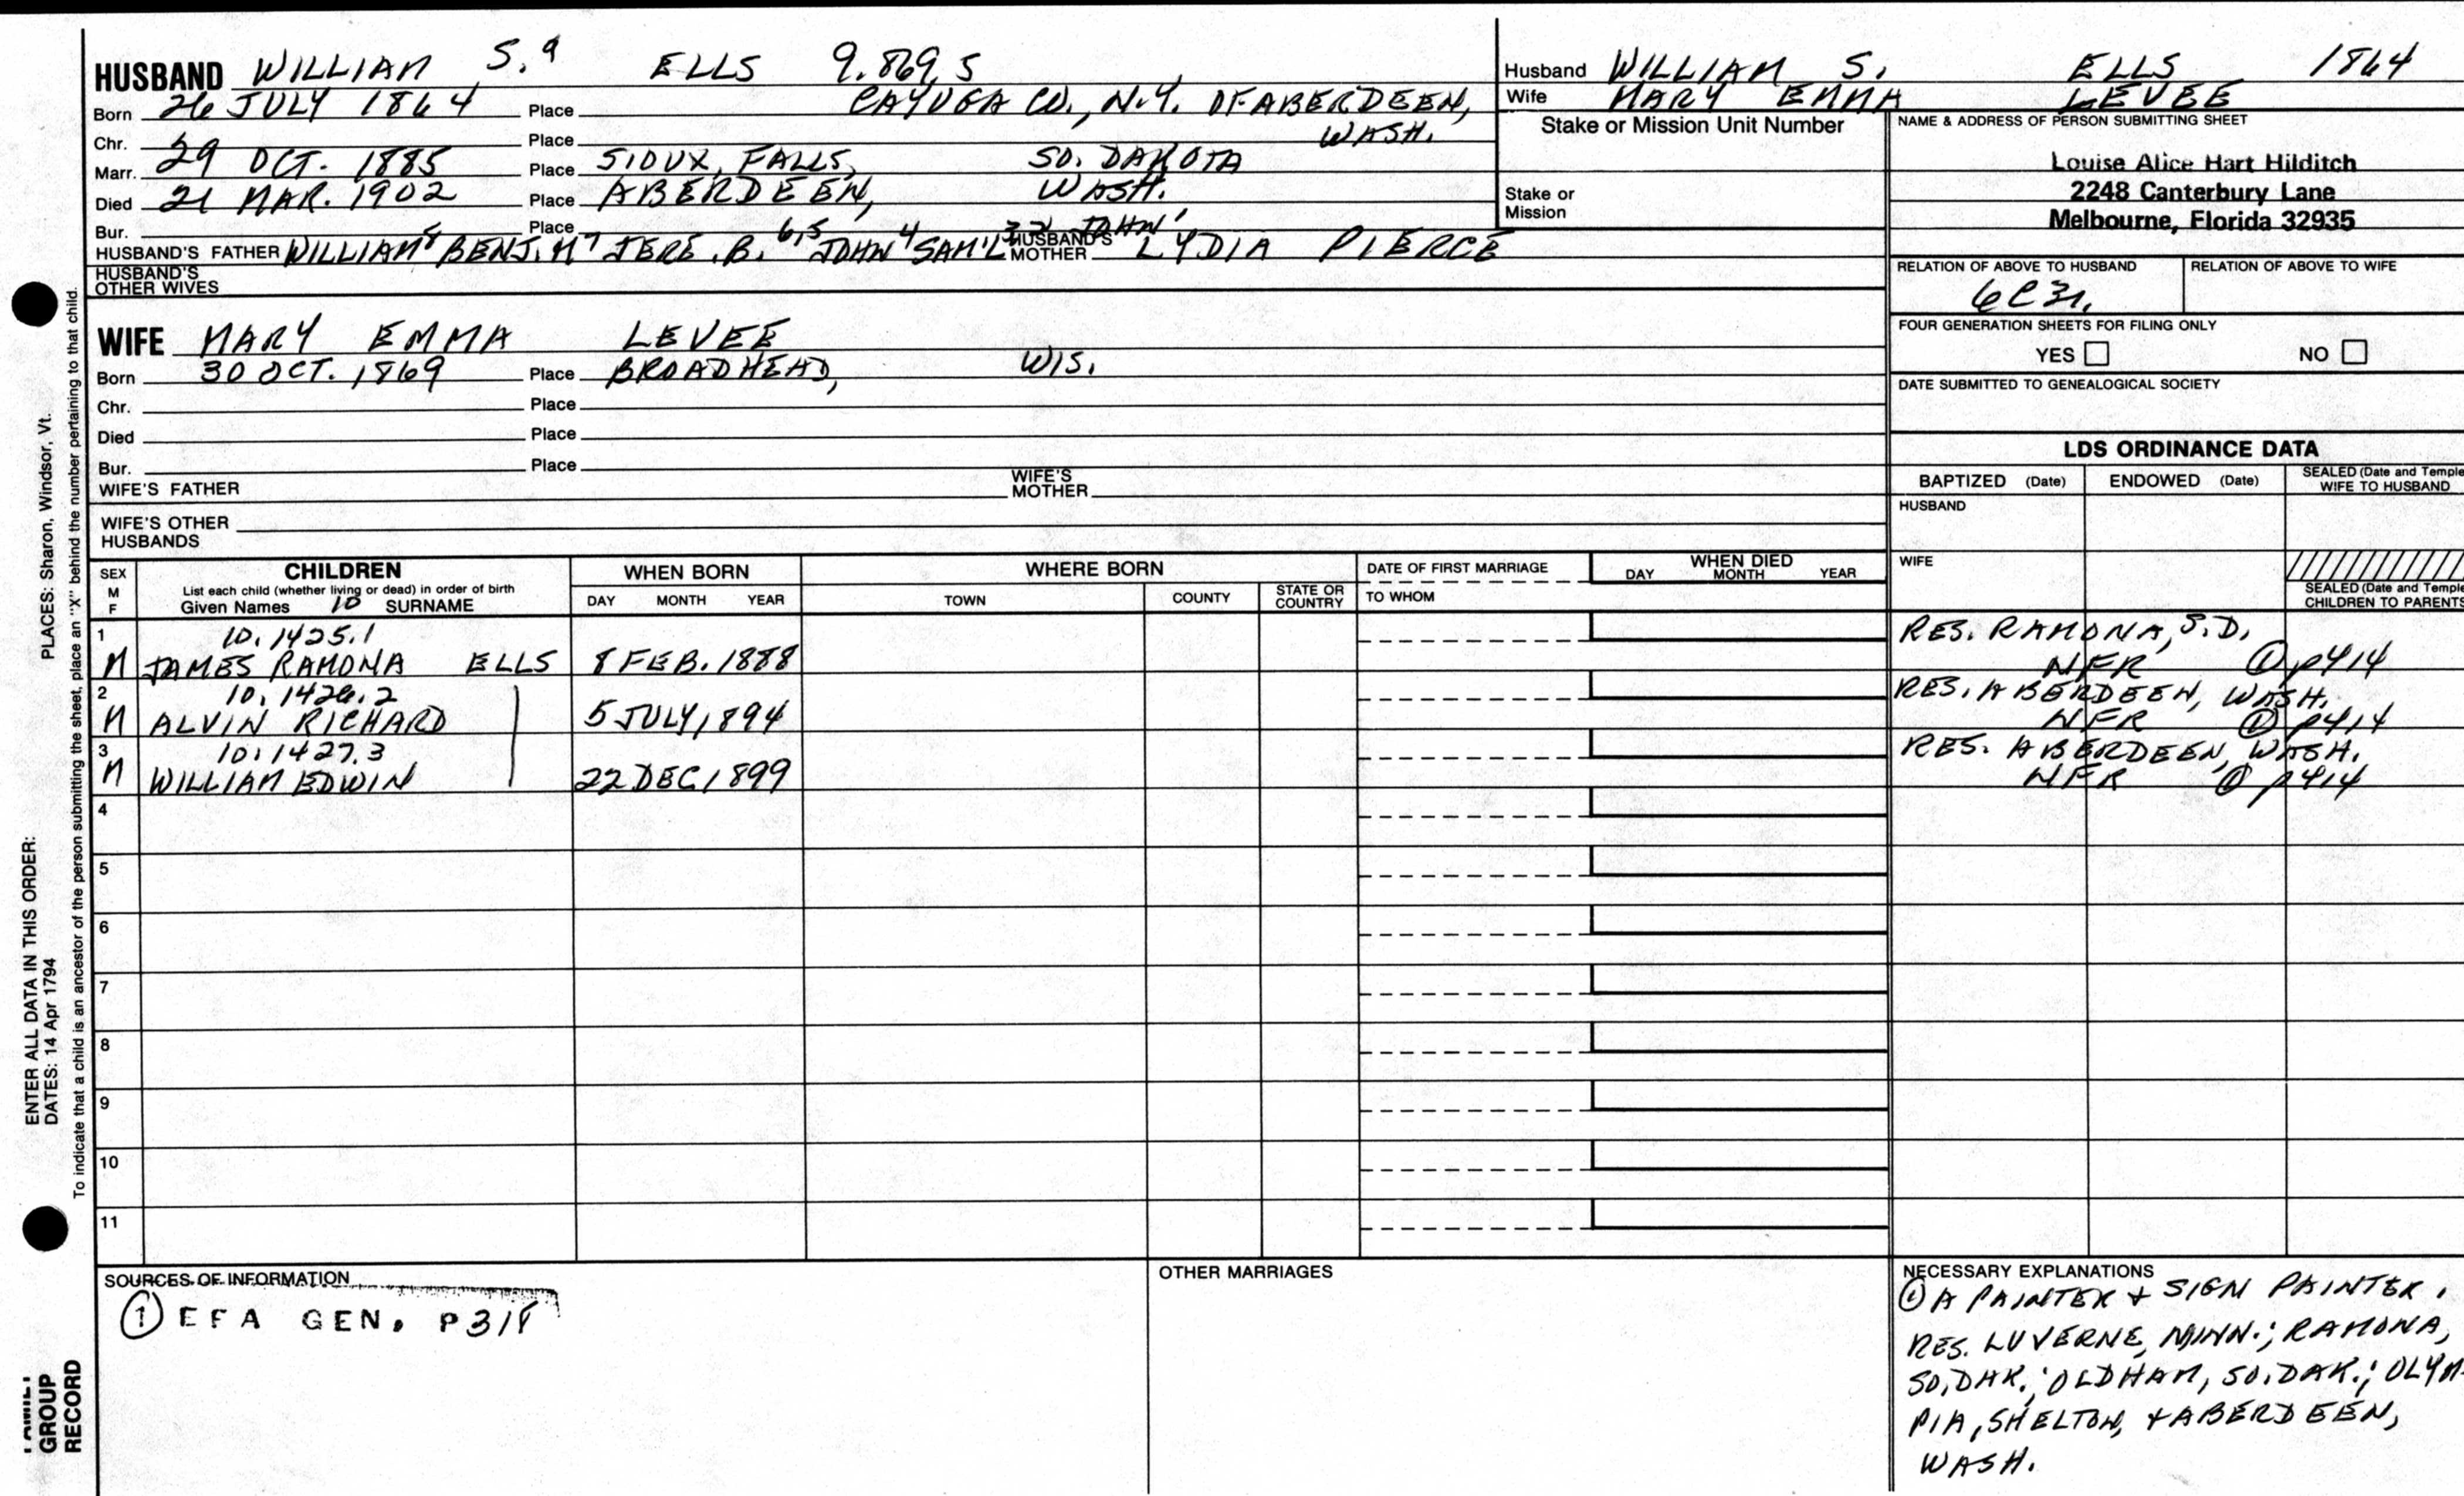 HUSBAND WILLIAM S.9 ELLS 9.869.5
Born 26 JULY 1864 Place CAYUGA CO., N.Y. OF ABERDEEN,
WASH.
Chr. Place
Marr. 29 OCT. 1885 Place SIOUX FALLS, SO. DAKOTA
Died 21 MAR. 1902 Place ABERDEEN, WASH.
Bur. Place
HUSBAND'S FATHER WILLIAM8 BENJ. M7 JERE. B. 6,5 JOHN4 SAM'L 3,2 JOHN1 HUSBAND'S MOTHER LYDIA PIERCE
HUSBAND'S OTHER WIVES
WIFE MARY EMMA LEVEE
Born 30 OCT. 1869 Place BROADHEAD, WIS.
Chr. Place
Died Place
Bur. Place
WIFE'S FATHER WIFE'S MOTHER
WIFE'S OTHER HUSBANDS
Husband WILLIAM S. ELLS 1864
Wife MARY EMMA LEVEE
Stake or Mission Unit Number
Stake or Mission
NAME & ADDRESS OF PERSON SUBMITTING SHEET
Louise Alice Hart Hilditch
2248 Canterbury Lane
Melbourne, Florida 32935
RELATION OF ABOVE TO HUSBAND RELATION OF ABOVE TO WIFE
6C3r.
FOUR GENERATION SHEETS FOR FILING ONLY
YES NO
DATE SUBMITTED TO GENEALOGICAL SOCIETY
LDS ORDINANCE DATA
BAPTIZED (Date) ENDOWED (Date) SEALED (Date and Temple
WIFE TO HUSBAND
HUSBAND
WIFE
SEALED (Date and Temple
CHILDREN TO PARENTS
SEX M F
CHILDREN
List each child (whether living or dead) in order of birth
Given Names 10 SURNAME
WHEN BORN
DAY MONTH YEAR
WHERE BORN
TOWN COUNTY STATE OR COUNTRY
DATE OF FIRST MARRIAGE
TO WHOM
WHEN DIED
DAY MONTH YEAR
1 10.1425.1 RES. RAMONA, S.D.
M JAMES RAMONA ELLS 8 FEB. 1888 NFR ① p414
2 10.1426.2 RES. ABERDEEN, WASH.
M ALVIN RICHARD 5 JULY 1894 NFR ① p414
3 10.1427.3 RES. ABERDEEN, WASH.
M WILLIAM EDWIN 22 DEC 1899 NFR ① p414
4
5
6
7
8
9
10
11
SOURCES OF INFORMATION
① EFA GEN. P318
OTHER MARRIAGES
NECESSARY EXPLANATIONS
① A PAINTER + SIGN PAINTER.
RES. LUVERNE, MINN.; RAMONA,
SO. DAK.; OLDHAM, SO. DAK.; OLYM-
PIA, SHELTON, + ABERDEEN,
WASH.
ENTER ALL DATA IN THIS ORDER:
DATES: 14 Apr 1794 PLACES: Sharon, Windsor, Vt.
To indicate that a child is an ancestor of the person submitting the sheet, place an "X" behind the number pertaining to that child.
FAMILY
GROUP
RECORD